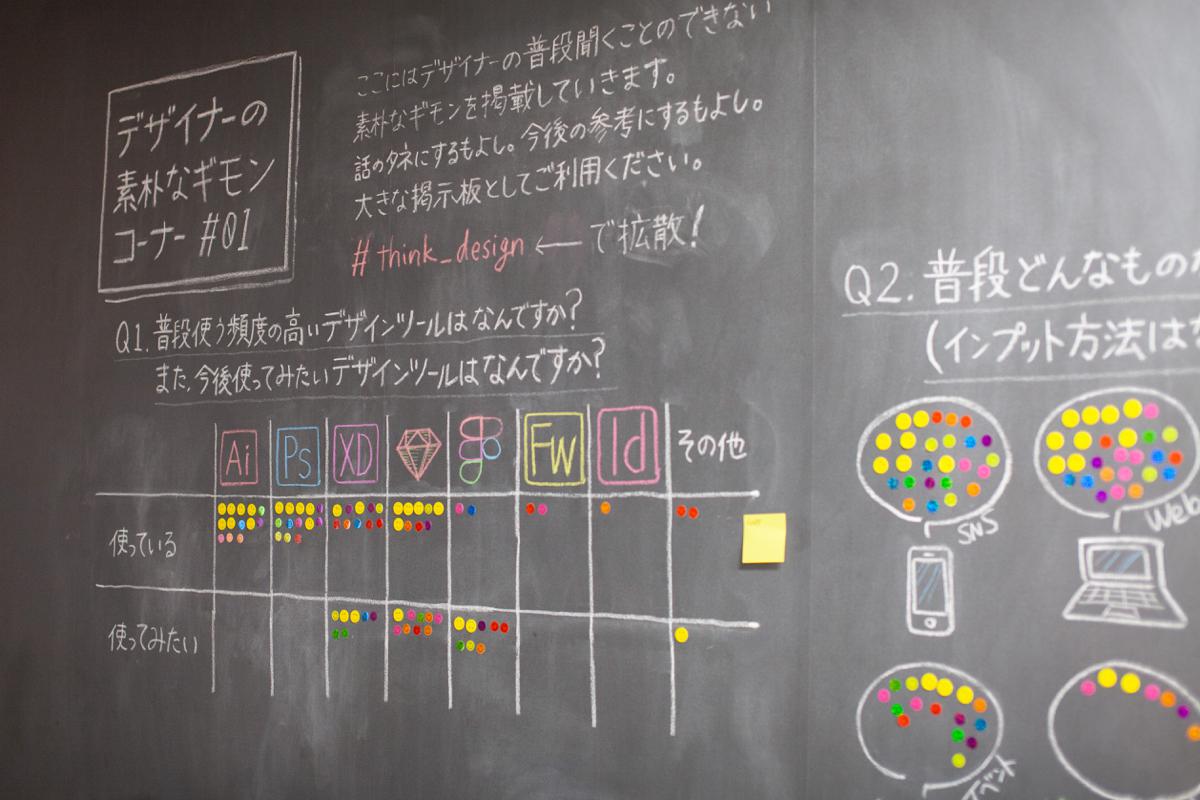 デザイナーの
素朴なギモン
コーナー #01
ここにはデザイナーの普段聞くことのできない
素朴なギモンを掲載していきます。
話のタネにするもよし。今後の参考にするもよし。
大きな掲示板としてご利用ください。
#think_design ← で拡散!
Q1. 普段使う頻度の高いデザインツールはなんですか?
また、今後使ってみたいデザインツールはなんですか?
Ai Ps XD Fw Id その他
使っている
使ってみたい
Q2. 普段どんなもの
(インプット方法は
SNS
Web
イベント